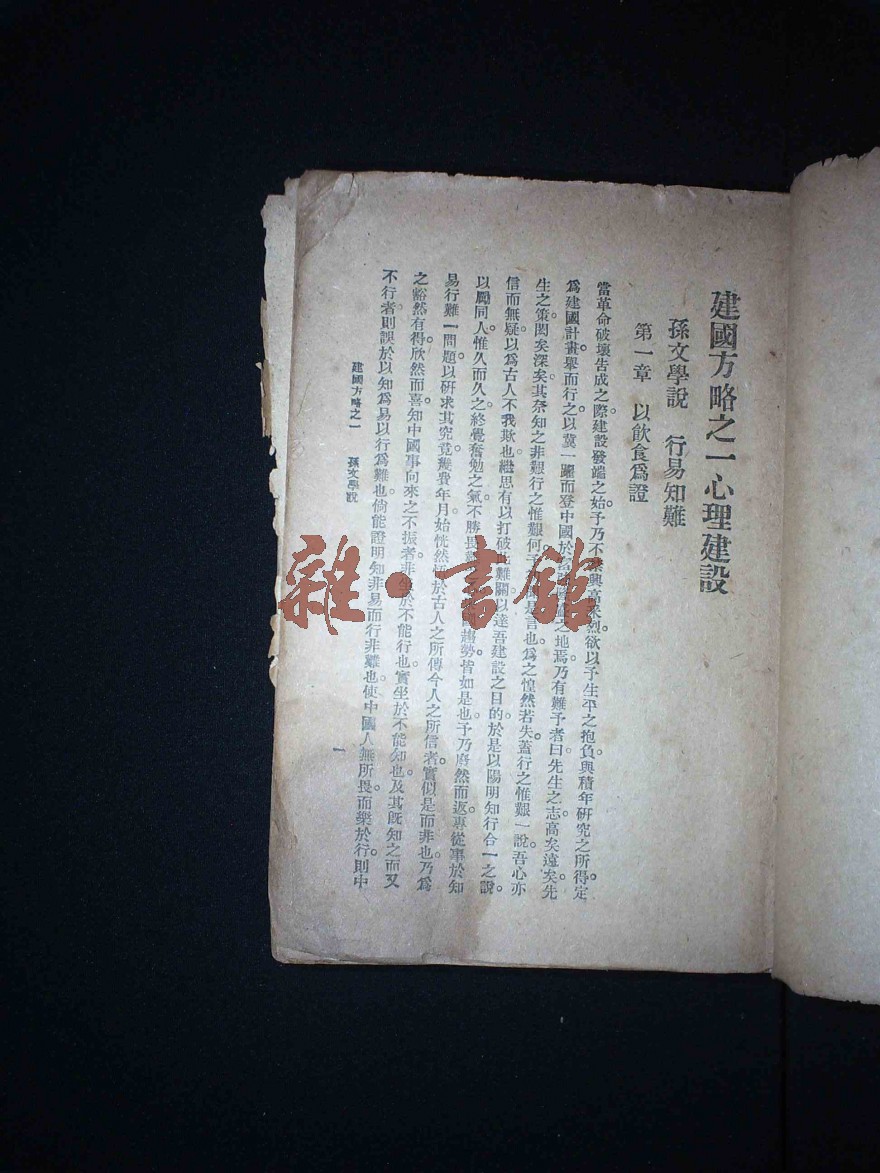 建國方略之一心理建設
孫文學說 行易知難
第一章 以飲食爲證
當革命破壞告成之際。建設發端之始。予乃不禁興高采烈。欲以予生平之抱負。與積年研究之所得。定
爲建國計畫。舉而行之。以冀一躍而登中國於富强隆盛之地焉。乃有難予者曰。先生之志高矣。遠矣。先
生之策閎矣。深矣。其奈知之非艱。行之惟艱何。予初聞是言也。爲之惶然若失。蓋行之惟艱一說。吾心亦
信而無疑。以爲古人不我欺也。繼思有以打破此難關。以達吾建設之目的。於是以陽明知行合一之說。
以勵同人。惟久而久之。終覺奮勉之氣。不勝畏難之
趨勢皆如是也。予乃廢然而返。專從事於知
易行難一問題。以研求其究竟。幾費年月。始恍然悟於古人之所傳。今人之所信者。實似是而非也。乃爲
之豁然有得。欣然而喜。知中國事向來之不振者。非坐於不能行也。實坐於不能知也。及其既知之而又
不行者。則誤於以知爲易以行爲難也。倘能證明知非易而行非難也。使中國人無所畏。而樂於行。則中
建國方略之一 孫文學說
一
雜·書館